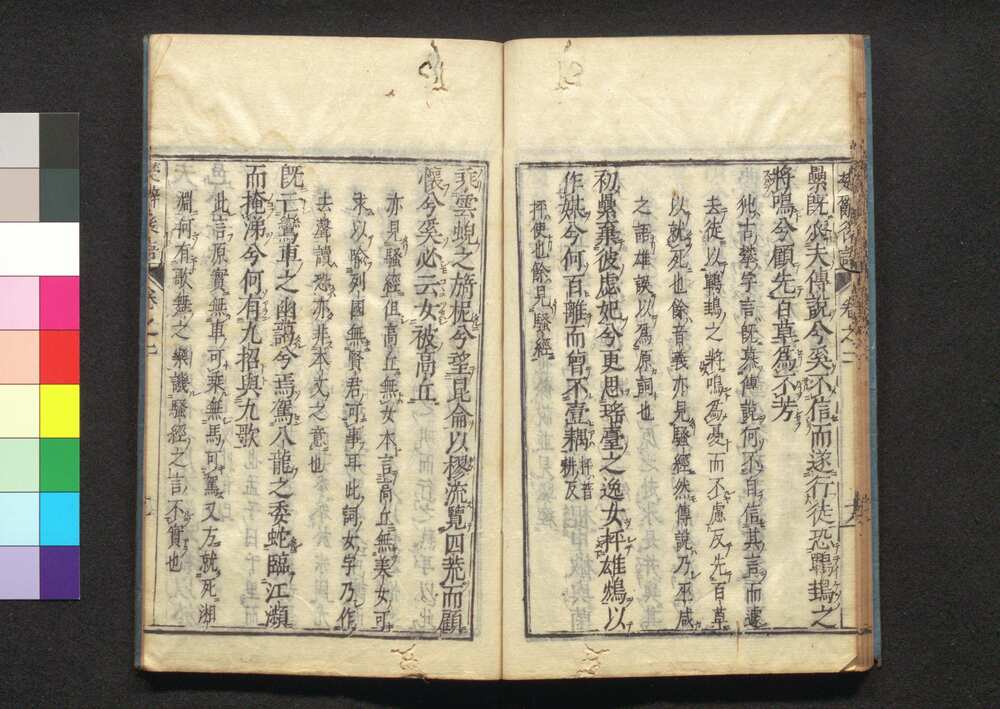 纍既𠬍夫傳説兮奚不信而遂行徒恐鷤䳏之
將鳴兮顧先百草爲不芳
他古攀字言既攀傳説何不自信其言而遽
去徒以鷤䳏之將鳴爲憂而不慮反先百草
以就死也餘音義亦見騷經然傳説乃巫咸
之語雄誤以爲原詞也
初纍棄彼虙妃兮更思瑤臺之逸女抨雄鴆以
作媒兮何百離而曾不壹耦抨音耕反
抨使也餘見騷經
乘雲蜺之旖柅兮望昆侖以樛流覽四荒而顧
懷兮奚必云女彼高丘
亦見騷經但高丘無女本言高丘無美女可
求以喻列國無賢君可事耳此詞女字乃作
去聲讀恐亦非本文之意也
既亡鸞車之幽藹兮焉駕八龍之委蛇臨江瀨
而掩涕兮何有九招與九歌
此言原實無車可乘無馬可駕又方就死湘
淵何有歌舞之樂譏騷經之言不實也
楚辭後語 卷之二